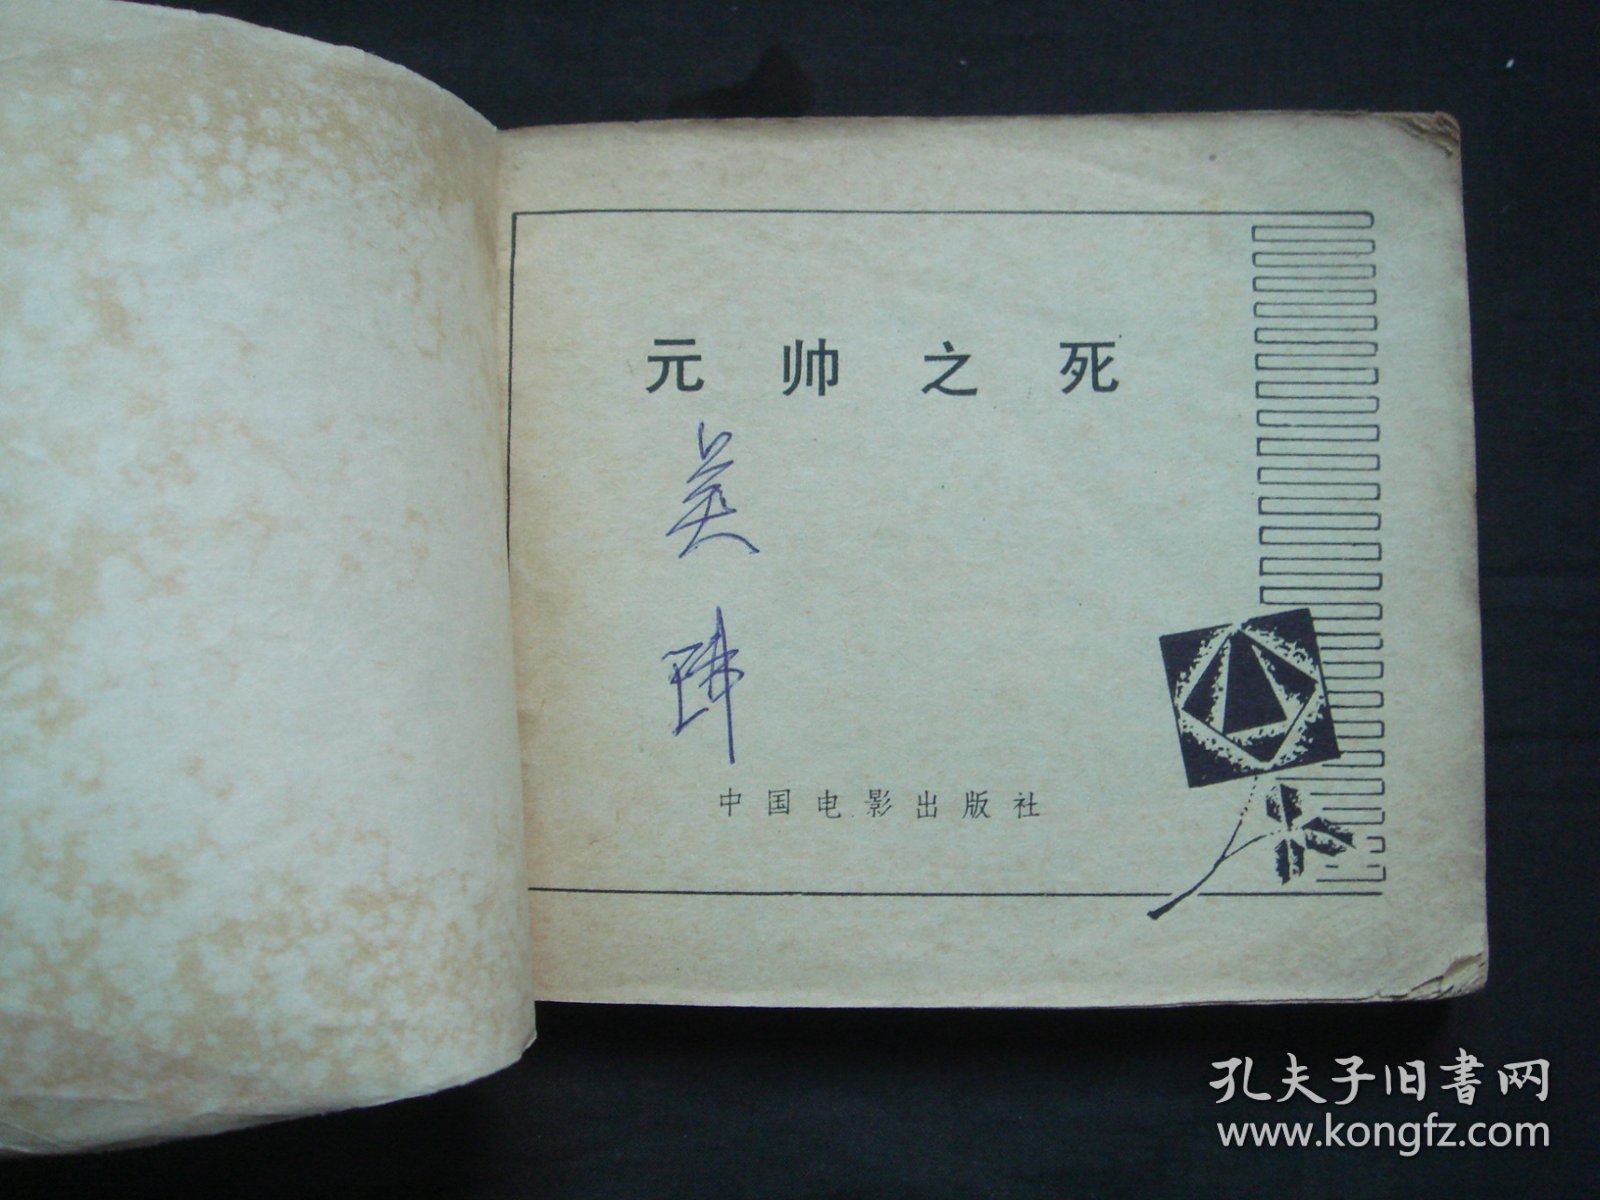 元帅之死
美
中国电影出版社
孔夫子旧書网
www.kongfz.com